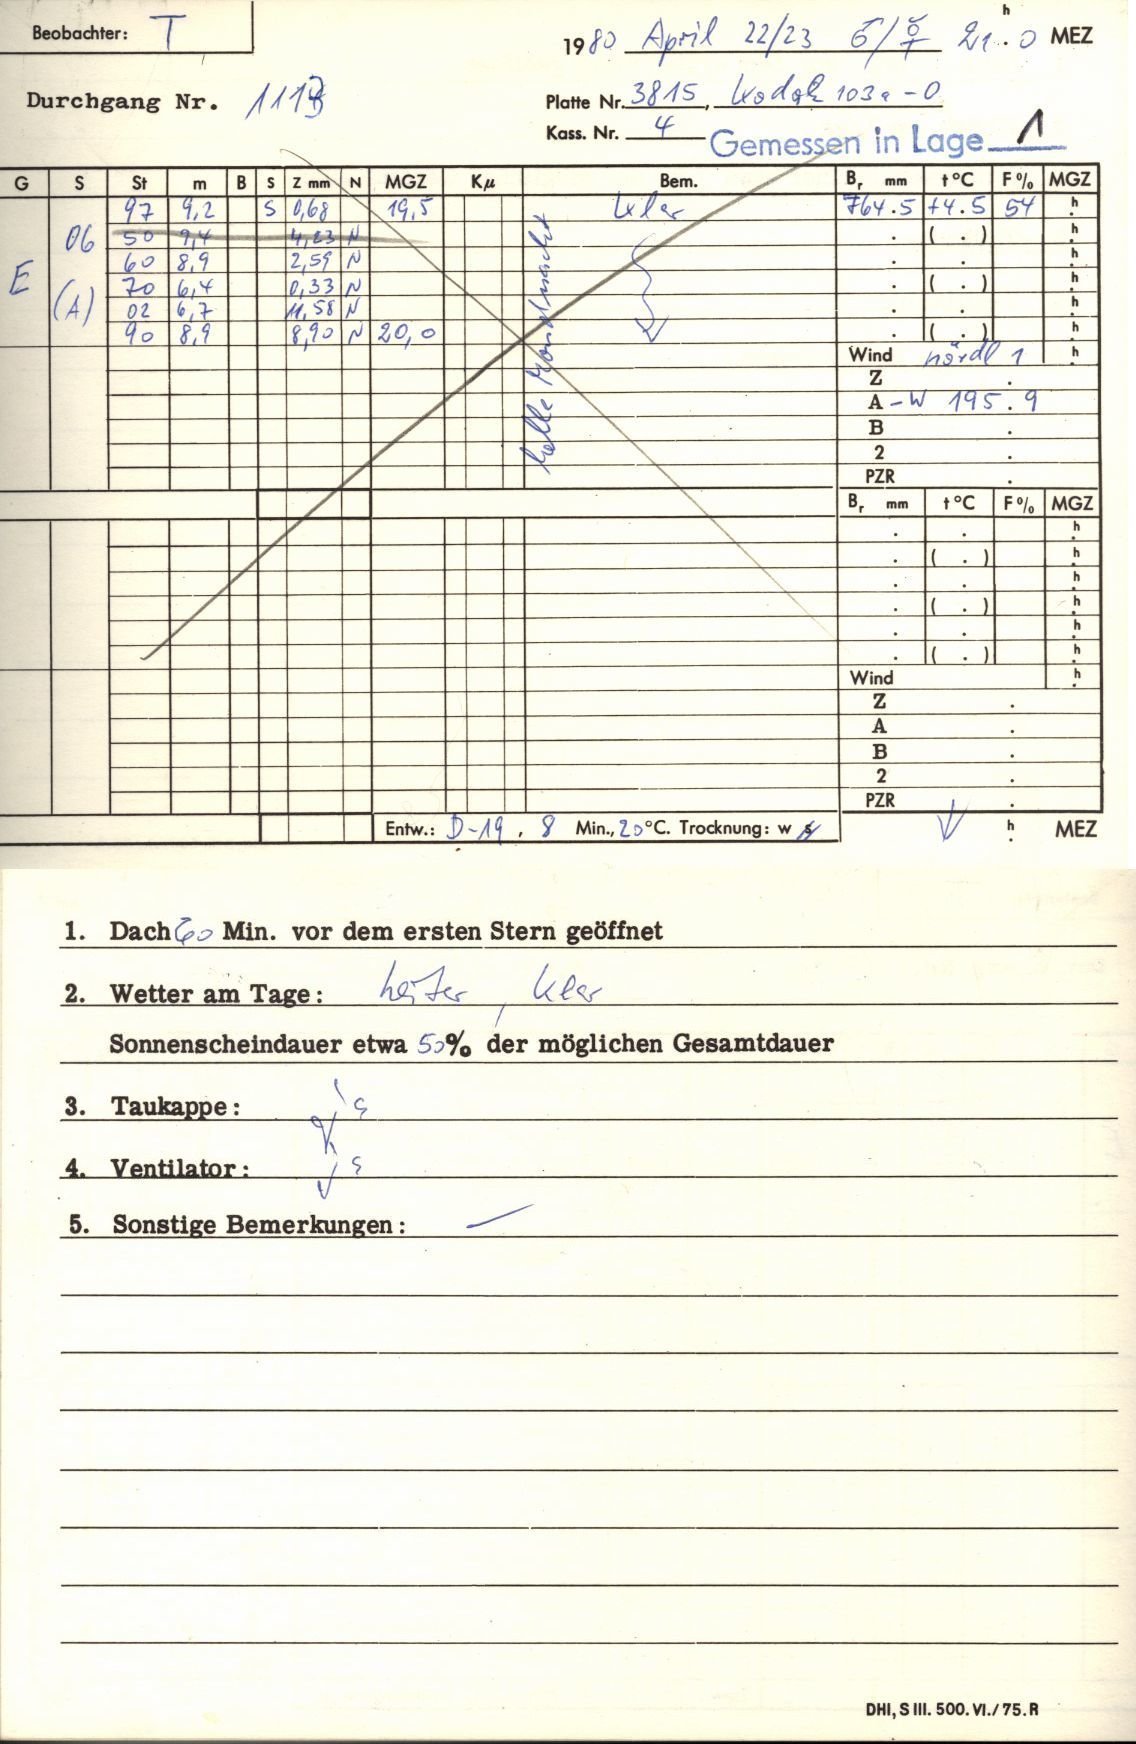 Beobachter: T
1980 April 22/23 21.0 h MEZ
Durchgang Nr. 1113
Platte Nr. 3815, Kodak 103a-O
Kass. Nr. 4
Gemessen in Lage 1
G S St m B S Z mm N MGZ Kµ Bem. Br mm t °C F % MGZ
97 9,2 S 0,68 19,5 klar 764.5 +4.5 54 h
06 50 9,4 4,23 N . ( . ) h
60 8,9 2,59 N . . h
E 70 6,4 0,33 N . ( . ) h
(A) 02 6,7 11,58 N . . h
90 8,9 8,90 N 20,0 . ( . ) h
helle Mondnacht
Wind nördl 1 h
Z .
A -W 195.9
B .
2 .
PZR .
Br mm t °C F % MGZ
. . h
. ( . ) h
. . h
. ( . ) h
. . h
. ( . ) h
Wind h
Z .
A .
B .
2 .
PZR .
Entw.: D-19, 8 Min., 20 °C. Trocknung: w s h MEZ
1. Dach 60 Min. vor dem ersten Stern geöffnet
2. Wetter am Tage: heiter, klar
Sonnenscheindauer etwa 50% der möglichen Gesamtdauer
3. Taukappe: ja
4. Ventilator: ja
5. Sonstige Bemerkungen: —
DHI, S III. 500. VI./75. R